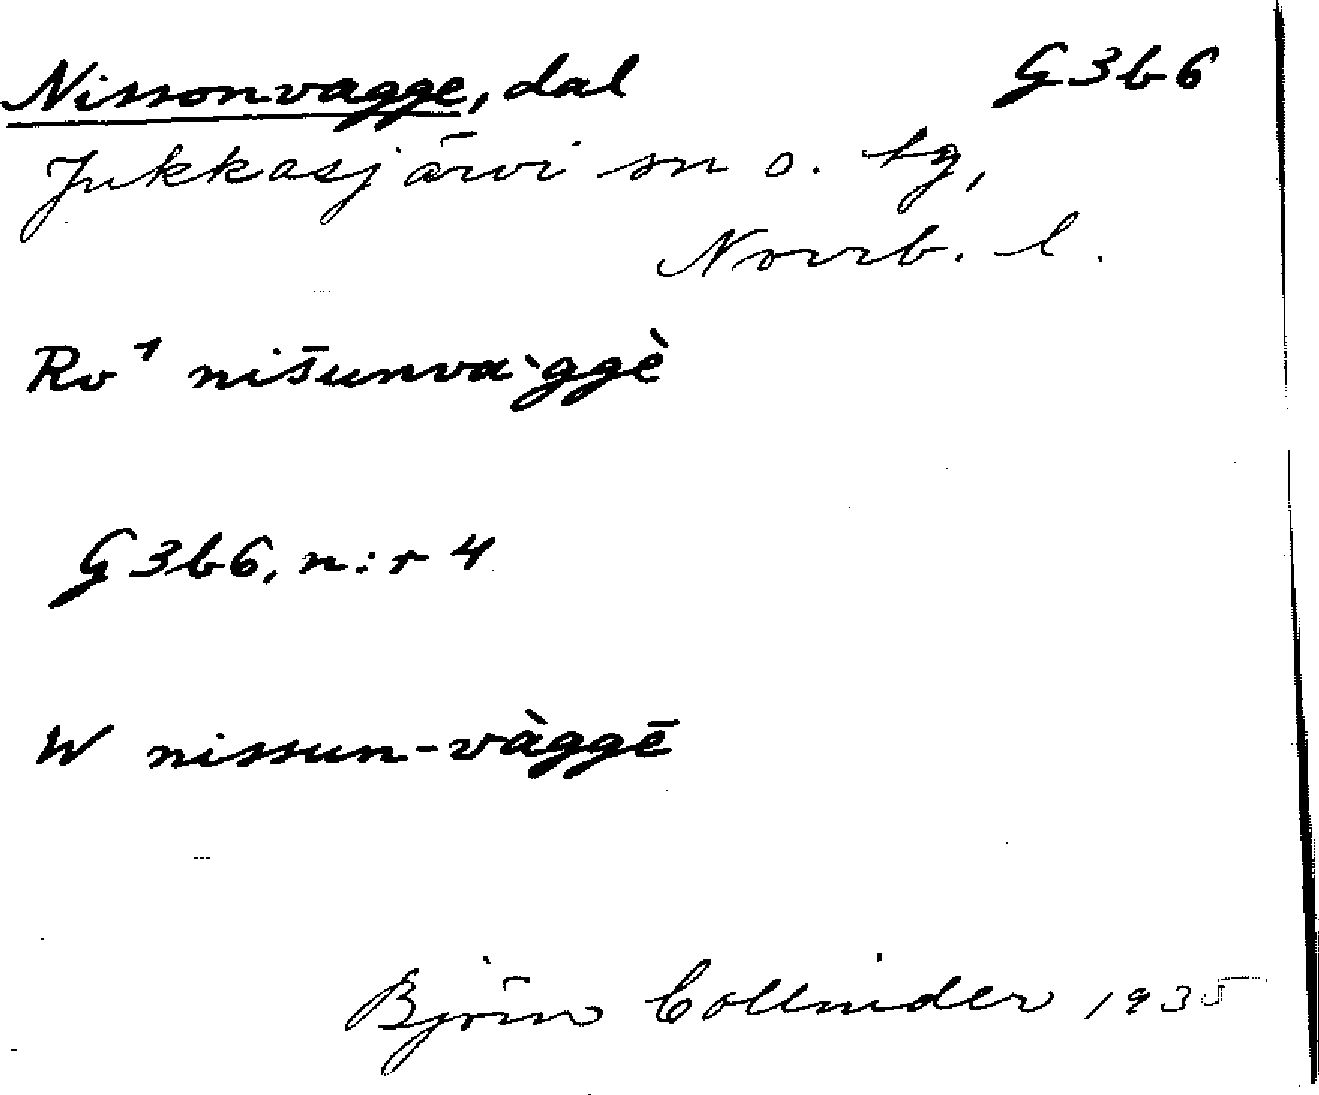 Nissonvagge, dal G3b6
Jukkasjärvi sn o. tg,
Norrb. l.
Ro¹ nis̄unvàggè
G3b6, n:r 4
W nissun-vàggē
Björn Collinder 1935